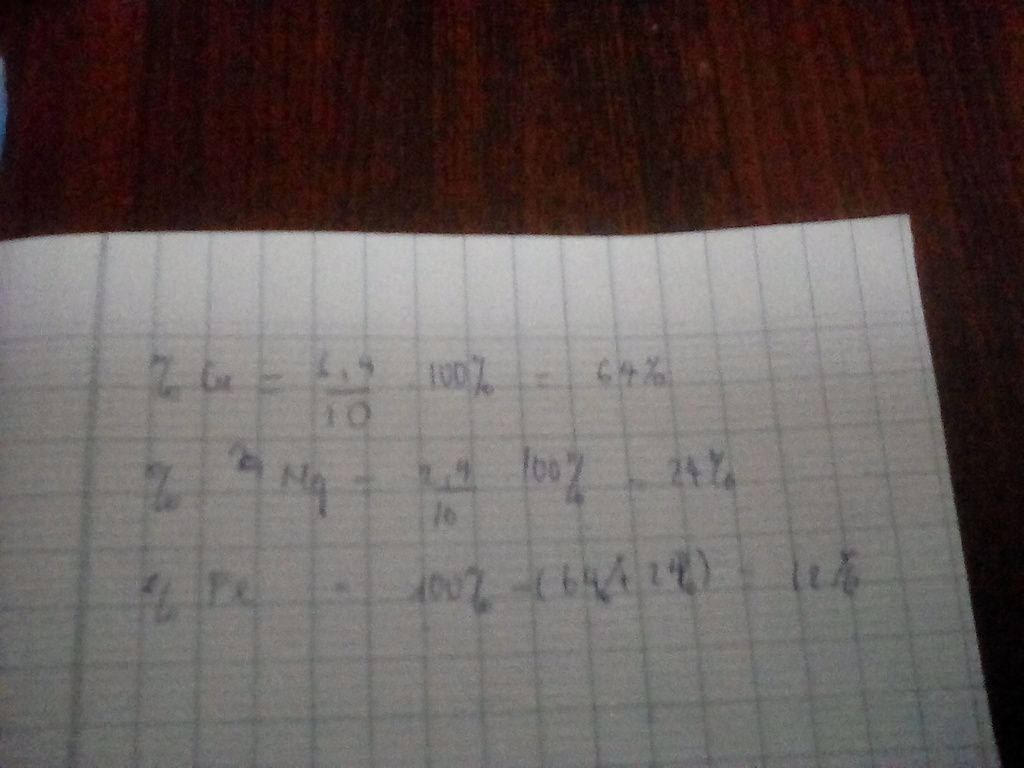 % Cu = 6,4/10 . 100% = 64%
% Mg = 2,4/10 100% = 24%
% Fe = 100% - (64% + 24%) = 12%